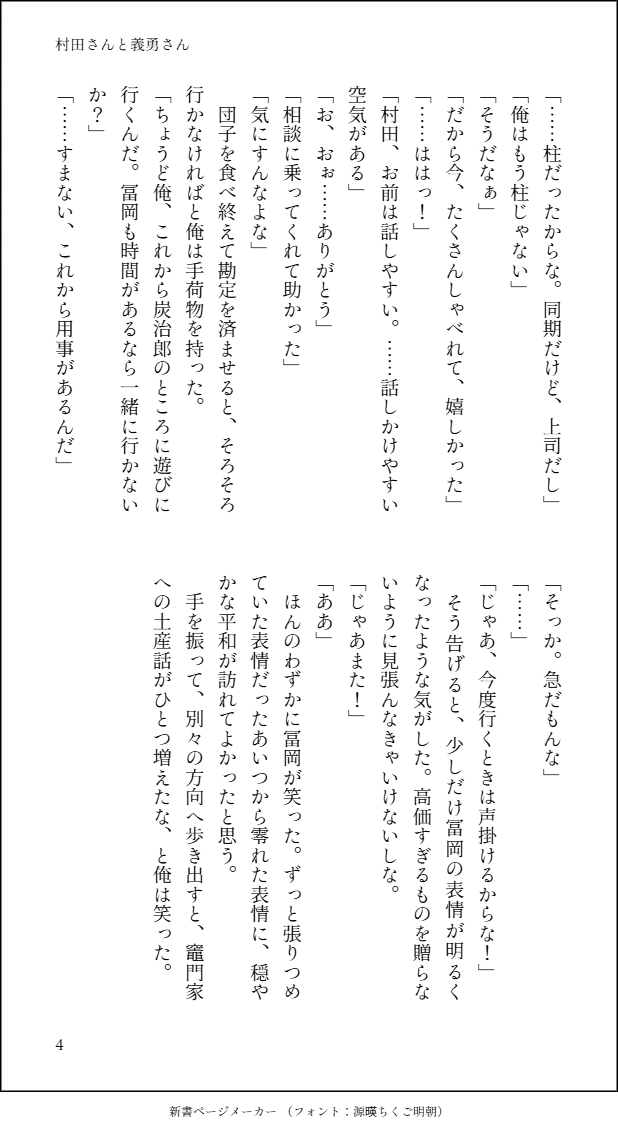 村田さんと義勇さん
「……柱だったからな。同期だけど、上司だし」
「俺はもう柱じゃない」
「そうだなぁ」
「だから今、たくさんしゃべれて、嬉しかった」
「……ははっ！」
「村田、お前は話しやすい。……話しかけやすい
空気がある」
「お、おぉ……ありがとう」
「相談に乗ってくれて助かった」
「気にすんなよな」
　団子を食べ終えて勘定を済ませると、そろそろ
行かなければと俺は手荷物を持った。
「ちょうど俺、これから炭治郎のところに遊びに
行くんだ。冨岡も時間があるなら一緒に行かない
か？」
「……すまない、これから用事があるんだ」
「そっか。急だもんな」
「……」
「じゃあ、今度行くときは声掛けるからな！」
　そう告げると、少しだけ冨岡の表情が明るく
なったような気がした。高価すぎるものを贈らな
いように見張んなきゃいけないしな。
「じゃあまた！」
「ああ」
　ほんのわずかに冨岡が笑った。ずっと張りつめ
ていた表情だったあいつから零れた表情に、穏や
かな平和が訪れてよかったと思う。
　手を振って、別々の方向へ歩き出すと、竈門家
への土産話がひとつ増えたな、と俺は笑った。
4
新書ページメーカー（フォント：源暎ちくご明朝）